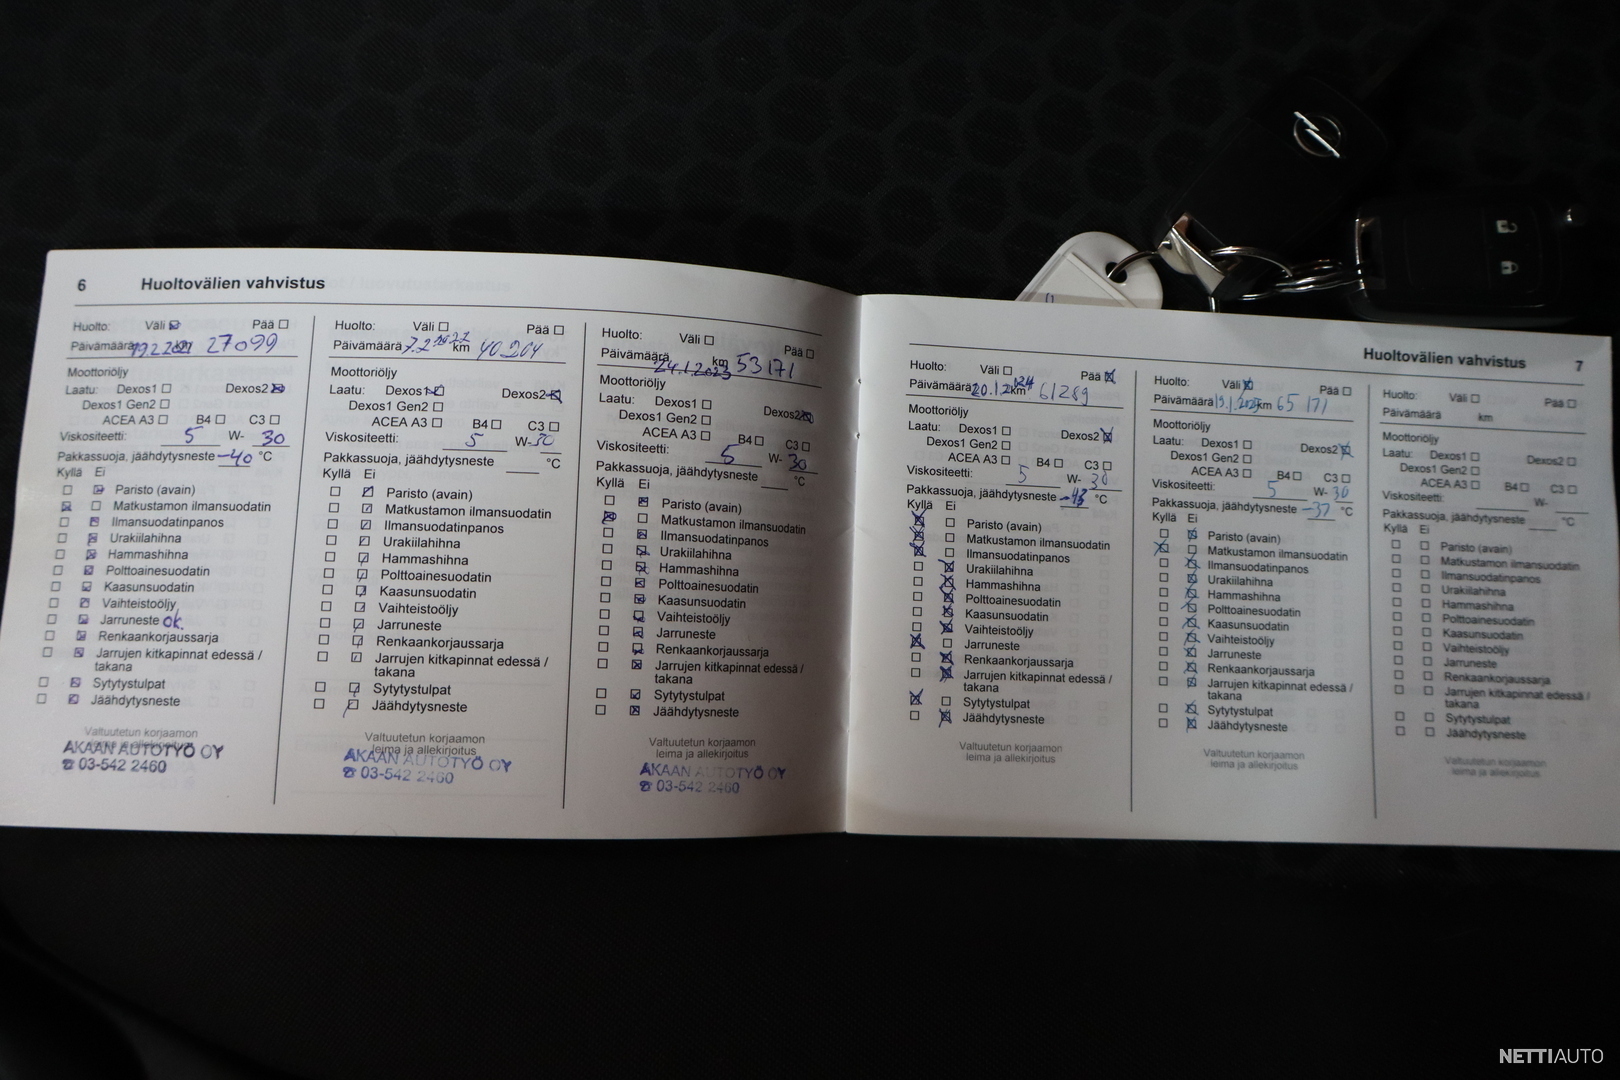 6 Huoltovälien vahvistus
Huolto: Väli Pää
Päivämäärä 19.2.2021 km 27099
Moottoriöljy
Laatu: Dexos1 Dexos2
Dexos1 Gen2
ACEA A3 B4 C3
Viskositeetti: 5 W- 30
Pakkassuoja, jäähdytysneste -40 °C
Kyllä Ei
Paristo (avain)
Matkustamon ilmansuodatin
Ilmansuodatinpanos
Urakiilahihna
Hammashihna
Polttoainesuodatin
Kaasunsuodatin
Vaihteistoöljy
Jarruneste ok.
Renkaankorjaussarja
Jarrujen kitkapinnat edessä /
takana
Sytytystulpat
Jäähdytysneste
Valtuutetun korjaamon
AKAAN AUTOTYÖ OY
☎ 03-542 2460
Huolto: Väli Pää
Päivämäärä 7.2.2022 km 40264
Moottoriöljy
Laatu: Dexos1 Dexos2
Dexos1 Gen2
ACEA A3 B4 C3
Viskositeetti: 5 W- 30
Pakkassuoja, jäähdytysneste °C
Kyllä Ei
Paristo (avain)
Matkustamon ilmansuodatin
Ilmansuodatinpanos
Urakiilahihna
Hammashihna
Polttoainesuodatin
Kaasunsuodatin
Vaihteistoöljy
Jarruneste
Renkaankorjaussarja
Jarrujen kitkapinnat edessä /
takana
Sytytystulpat
Jäähdytysneste
Valtuutetun korjaamon
leima ja allekirjoitus
AKAAN AUTOTYÖ OY
☎ 03-542 2460
Huolto: Väli Pää
Päivämäärä 24.1.2023 km 53171
Moottoriöljy
Laatu: Dexos1 Dexos2
Dexos1 Gen2
ACEA A3 B4 C3
Viskositeetti: 5 W- 30
Pakkassuoja, jäähdytysneste °C
Kyllä Ei
Paristo (avain)
Matkustamon ilmansuodatin
Ilmansuodatinpanos
Urakiilahihna
Hammashihna
Polttoainesuodatin
Kaasunsuodatin
Vaihteistoöljy
Jarruneste
Renkaankorjaussarja
Jarrujen kitkapinnat edessä /
takana
Sytytystulpat
Jäähdytysneste
Valtuutetun korjaamon
leima ja allekirjoitus
AKAAN AUTOTYÖ OY
☎ 03-542 2460
Huoltovälien vahvistus 7
Huolto: Väli Pää
Päivämäärä 20.1.24 km 61289
Moottoriöljy
Laatu: Dexos1 Dexos2
Dexos1 Gen2
ACEA A3 B4 C3
Viskositeetti: 5 W- 30
Pakkassuoja, jäähdytysneste -43 °C
Kyllä Ei
Paristo (avain)
Matkustamon ilmansuodatin
Ilmansuodatinpanos
Urakiilahihna
Hammashihna
Polttoainesuodatin
Kaasunsuodatin
Vaihteistoöljy
Jarruneste
Renkaankorjaussarja
Jarrujen kitkapinnat edessä /
takana
Sytytystulpat
Jäähdytysneste
Valtuutetun korjaamon
leima ja allekirjoitus
Huolto: Väli Pää
Päivämäärä km 65 171
Moottoriöljy
Laatu: Dexos1 Dexos2
Dexos1 Gen2
ACEA A3 B4 C3
Viskositeetti: 5 W- 30
Pakkassuoja, jäähdytysneste -37 °C
Kyllä Ei
Paristo (avain)
Matkustamon ilmansuodatin
Ilmansuodatinpanos
Urakiilahihna
Hammashihna
Polttoainesuodatin
Kaasunsuodatin
Vaihteistoöljy
Jarruneste
Renkaankorjaussarja
Jarrujen kitkapinnat edessä /
takana
Sytytystulpat
Jäähdytysneste
Valtuutetun korjaamon
leima ja allekirjoitus
Huolto: Väli Pää
Päivämäärä km
Moottoriöljy
Laatu: Dexos1 Dexos2
Dexos1 Gen2
ACEA A3 B4 C3
Viskositeetti: W-
Pakkassuoja, jäähdytysneste °C
Kyllä Ei
Paristo (avain)
Matkustamon ilmansuodatin
Ilmansuodatinpanos
Urakiilahihna
Hammashihna
Polttoainesuodatin
Kaasunsuodatin
Vaihteistoöljy
Jarruneste
Renkaankorjaussarja
Jarrujen kitkapinnat edessä /
takana
Sytytystulpat
Jäähdytysneste
Valtuutetun korjaamon
leima ja allekirjoitus
NETTIAUTO